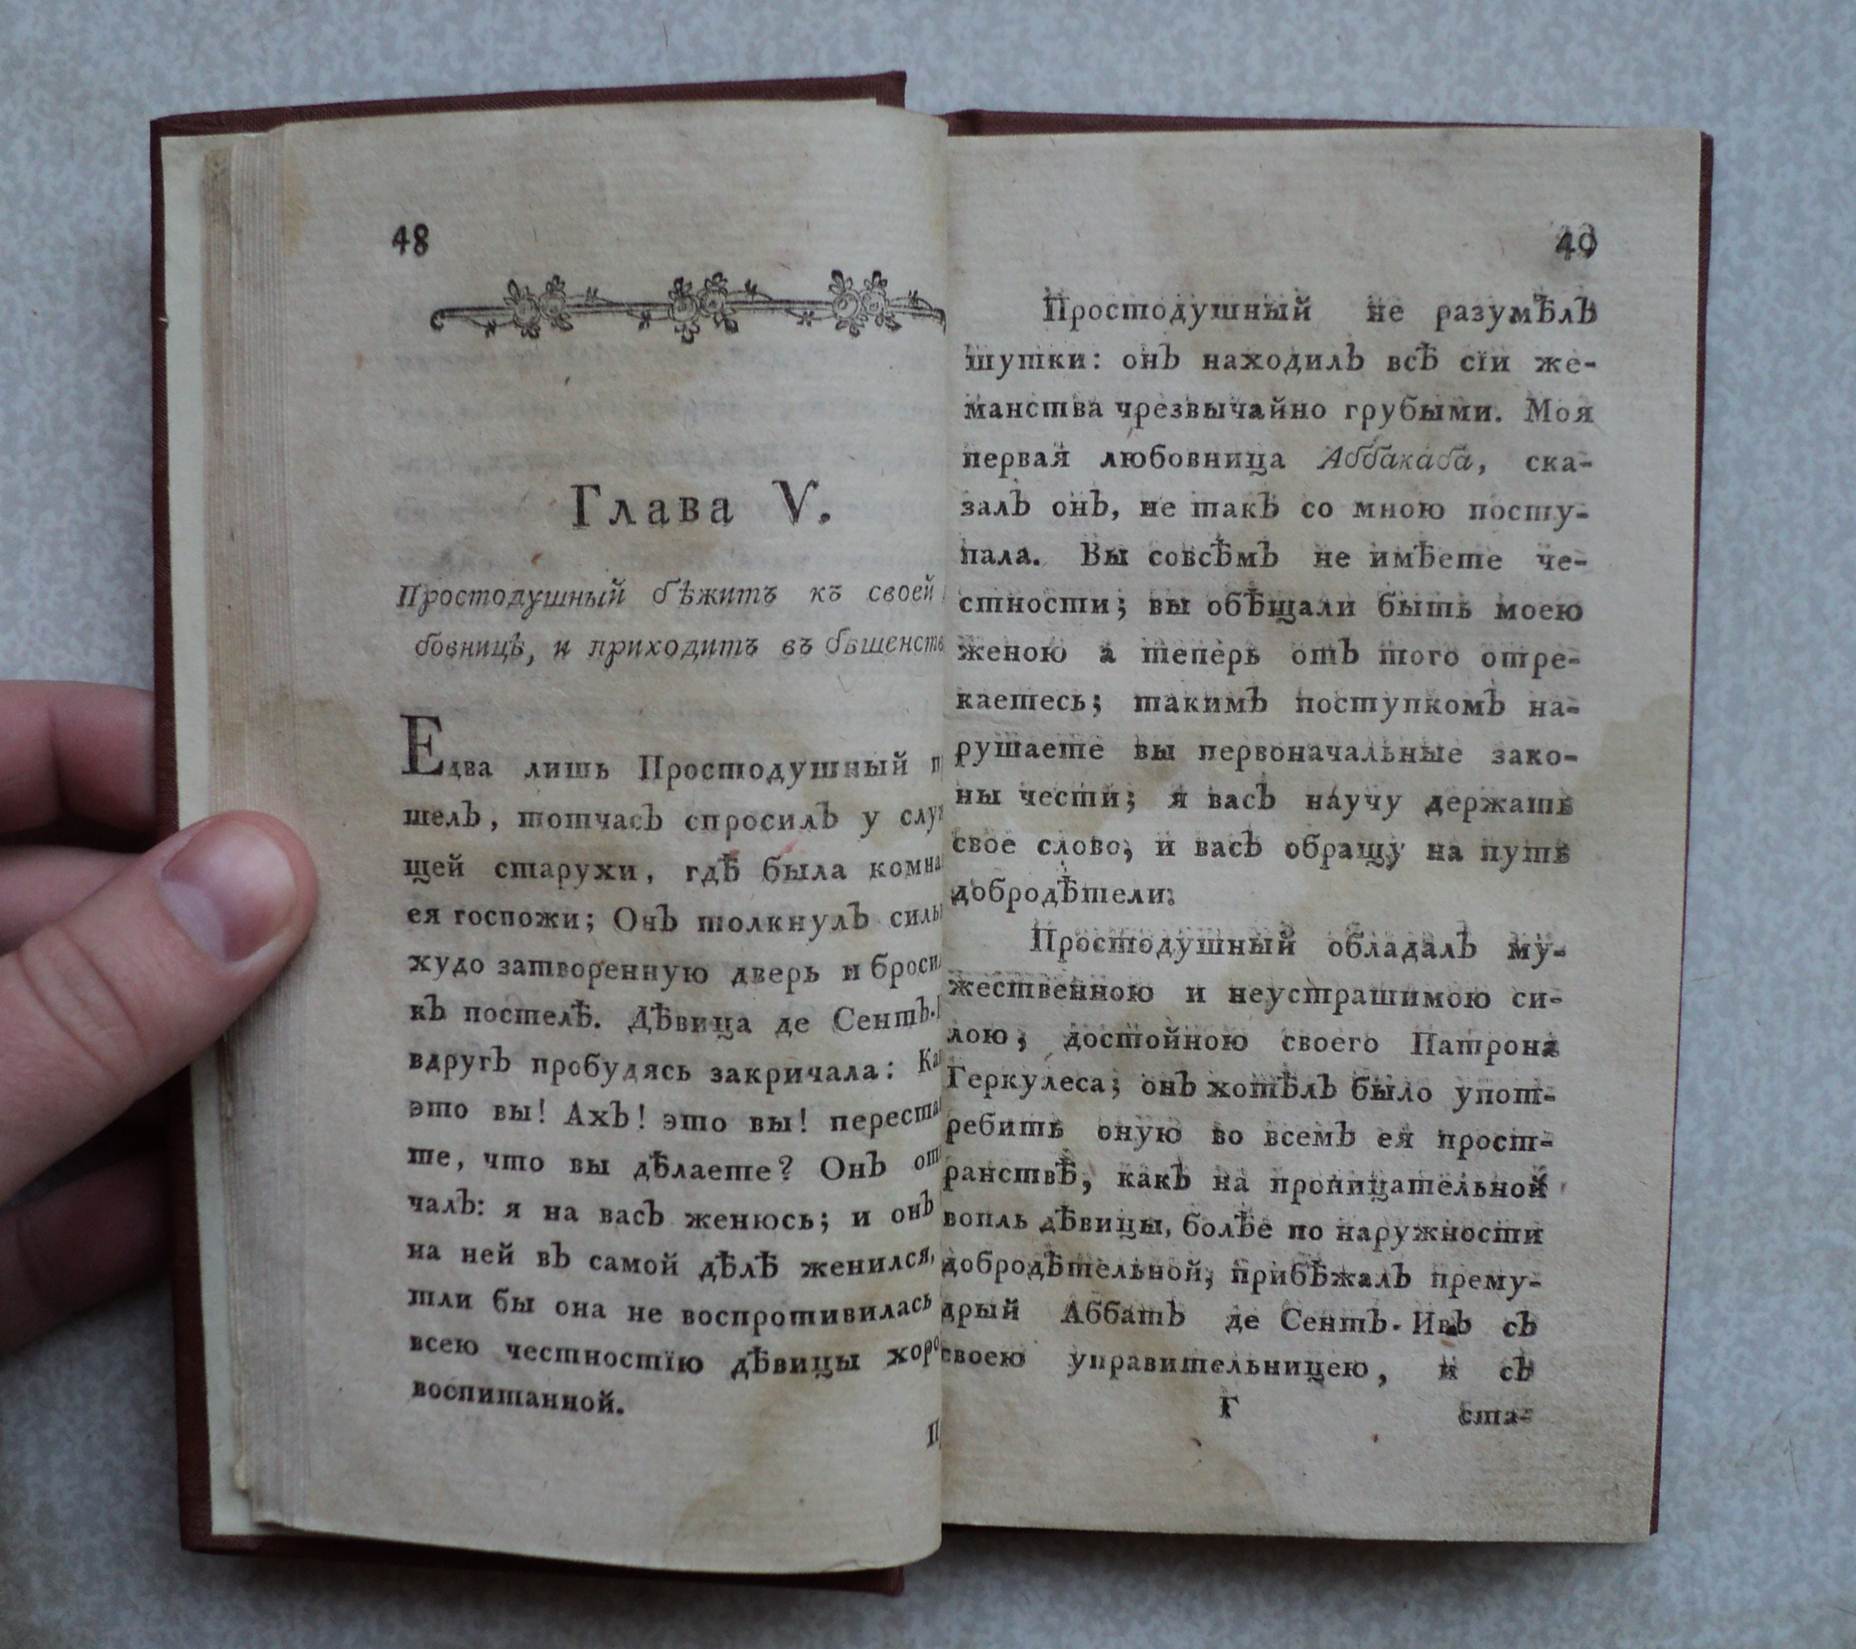 48
Глава V.
Простодушный бѣжитъ къ своей
бовницѣ, и приходитъ въ бѣшенств
Едва лишь Простодушный п
шелъ, тотчасъ спросилъ у слу
щей старухи, гдѣ была комна
ея госпожи; Онъ толкнулъ силь
худо затворенную дверь и броси
къ постелѣ. Дѣвица де Сентъ-
вдругъ пробудясь закричала: Ка
это вы! Ахъ! это вы! переста
те, что вы дѣлаете? Онъ от
чалъ: я на васъ женюсь; и онъ
на ней въ самой дѣлѣ женился,
тли бы она не воспротивилась
всею честностїю дѣвицы хоро
воспитанной.
П
49
Простодушный не разумѣлъ
шутки: онъ находилъ всѣ сїи же-
манства чрезвычайно грубыми. Моя
первая любовница Аббакаба, ска-
залъ онъ, не такъ со мною посту-
пала. Вы совсѣмъ не имѣете че-
стности; вы обѣщали быть моею
женою а теперь отъ того отре-
каетесь; такимъ поступкомъ на-
рушаете вы первоначальные зако-
ны чести; я васъ научу держать
свое слово, и васъ обращу на путь
добродѣтели.
Простодушный обладалъ му-
жественною и неустрашимою си-
лою, достойною своего Патрона
Геркулеса; онъ хотѣлъ было упот-
ребить оную во всемъ ея прост-
ранствѣ, какъ на проницательной
вопль дѣвицы, болѣе по наружности
добродѣтельной, прибѣжалъ прему-
дрый Аббатъ де Сентъ-Ивъ съ
своею управительницею, и съ
Г ста-